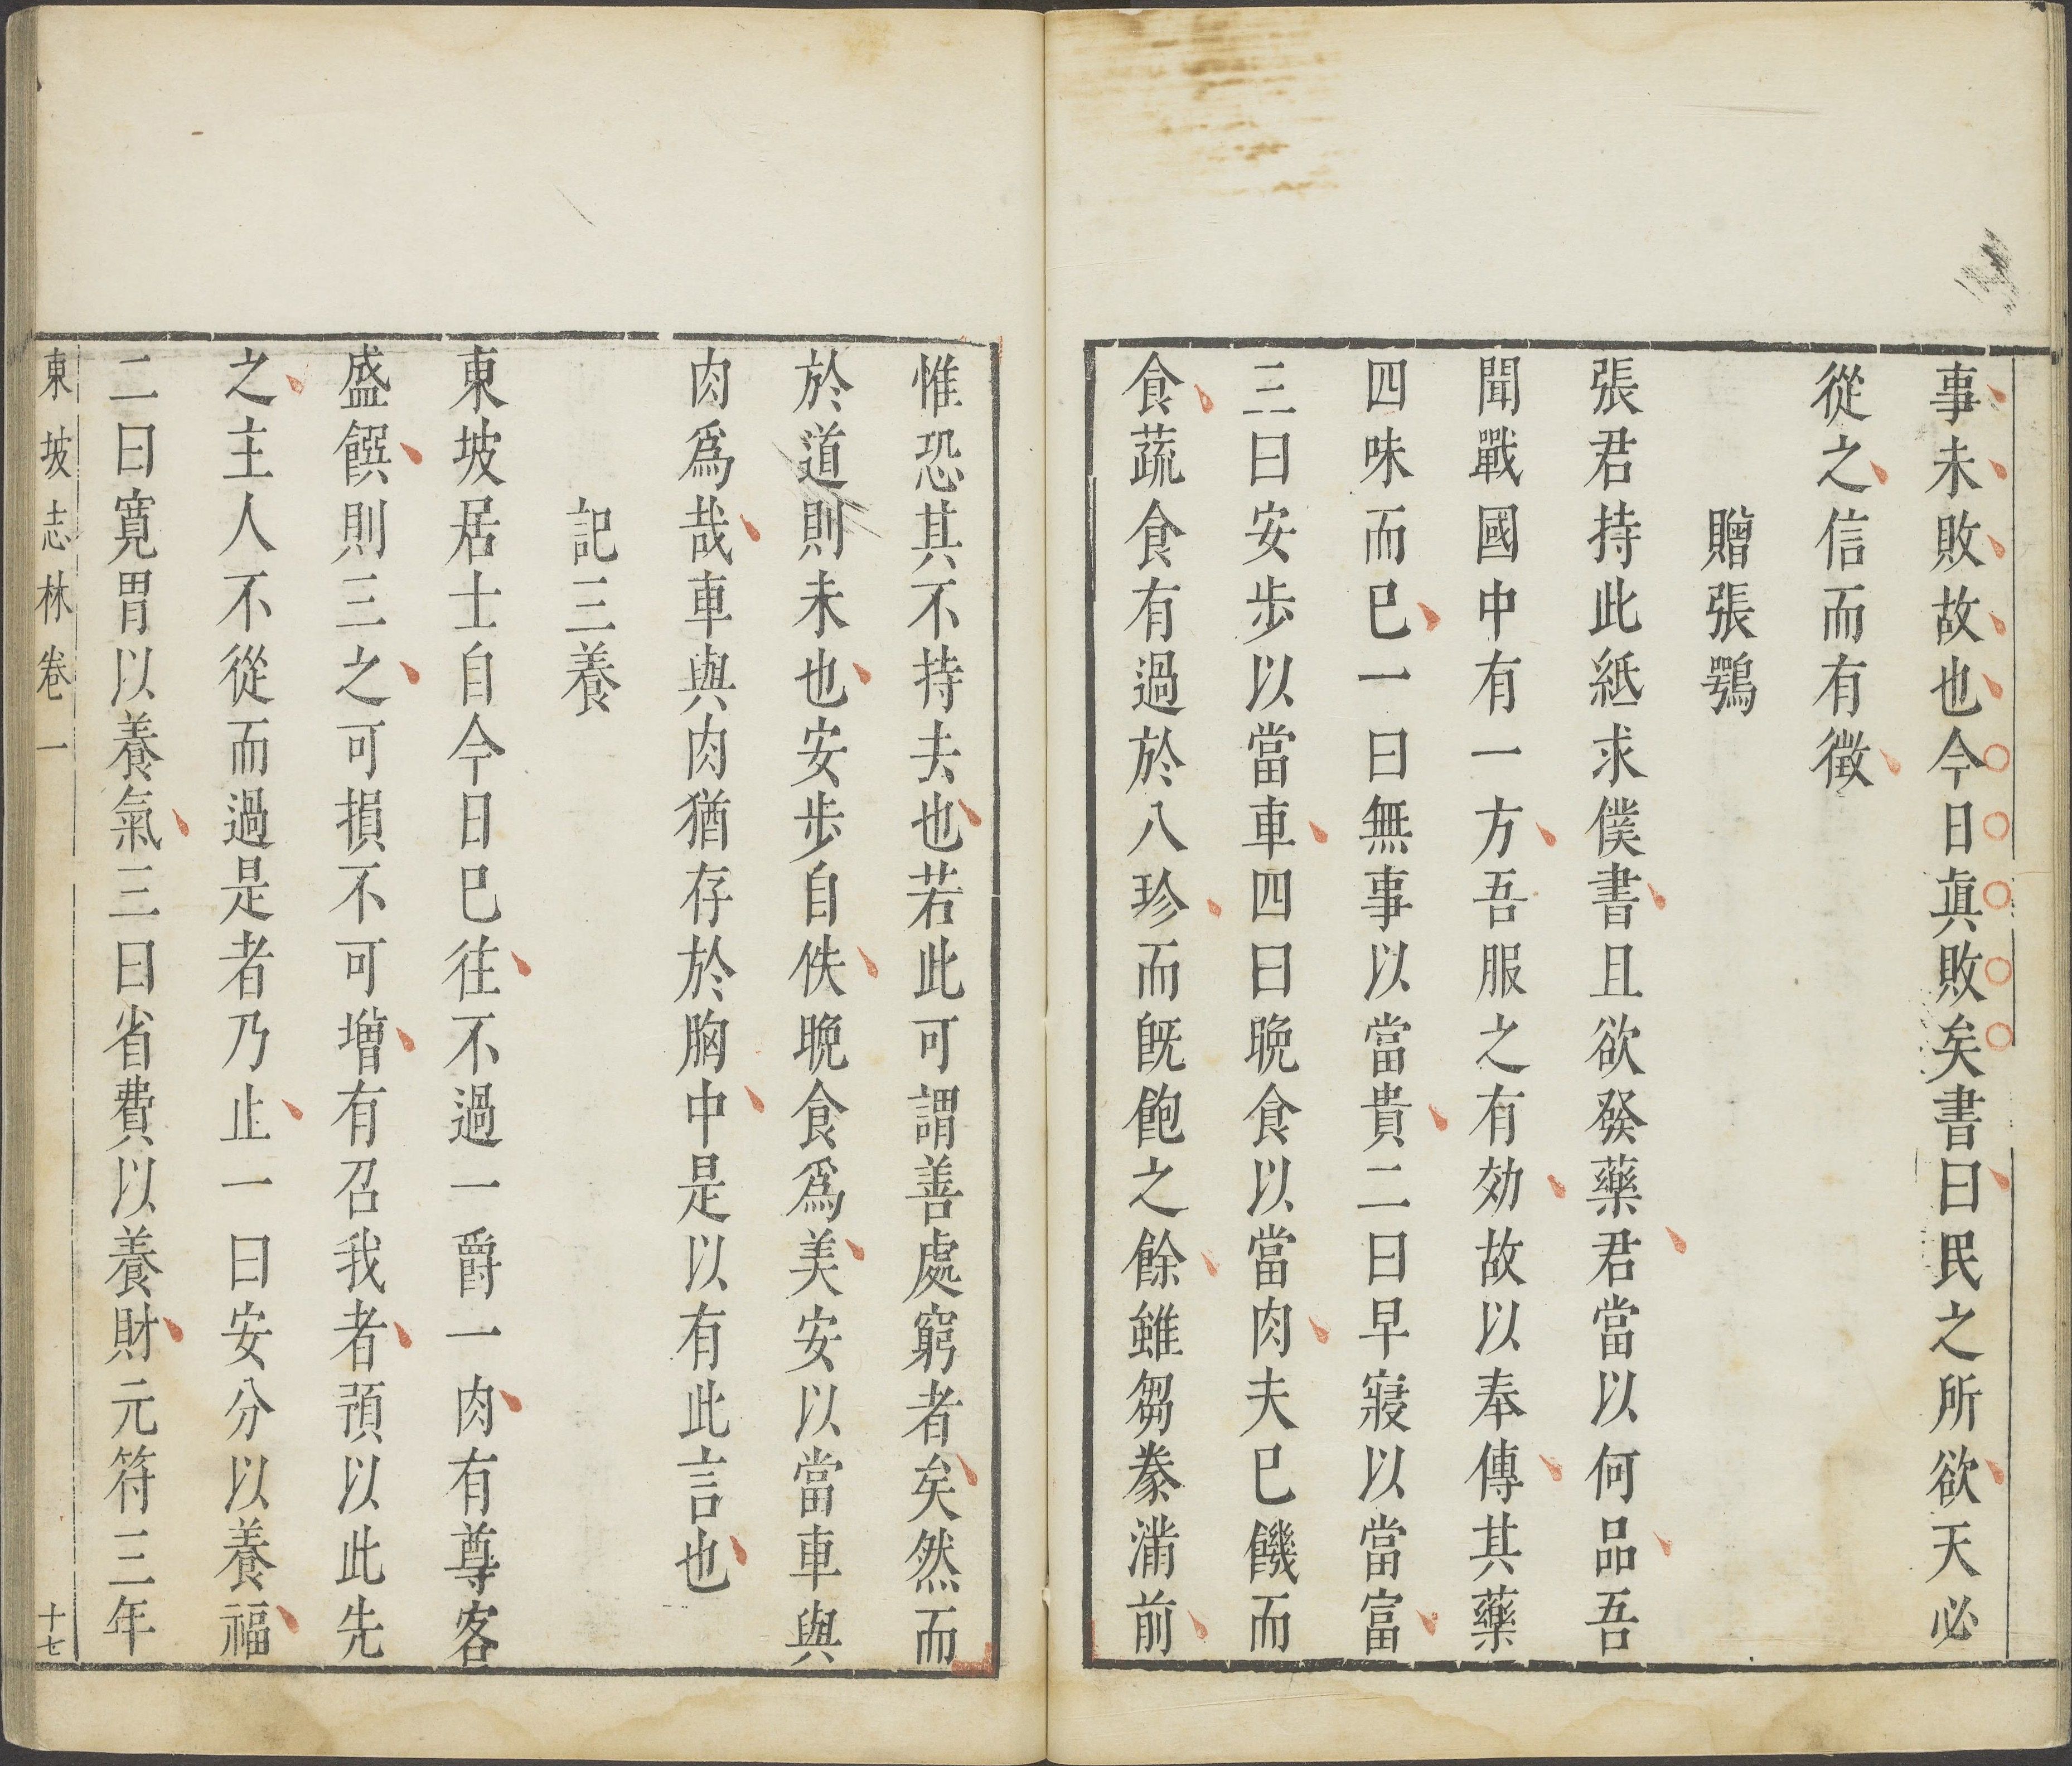 事未敗故也今日真敗矣書曰民之所欲天必
從之信而有徵
贈張鶚
張君持此紙求僕書且欲發藥君當以何品吾
聞戰國中有一方吾服之有効故以奉傳其藥
四味而已一曰無事以當貴二曰早寢以當富
三曰安步以當車四曰晚食以當肉夫已饑而
食蔬食有過於八珍而旣飽之餘雖芻豢滿前
惟恐其不持去也若此可謂善處窮者矣然而
於道則未也安步自佚晚食爲美安以當車與
肉爲哉車與肉猶存於胸中是以有此言也
記三養
東坡居士自今日已往不過一爵一肉有尊客
盛饌則三之可損不可增有召我者預以此先
之主人不從而過是者乃止一曰安分以養福
二曰寬胃以養氣三曰省費以養財元符三年
東坡志林卷一 十七